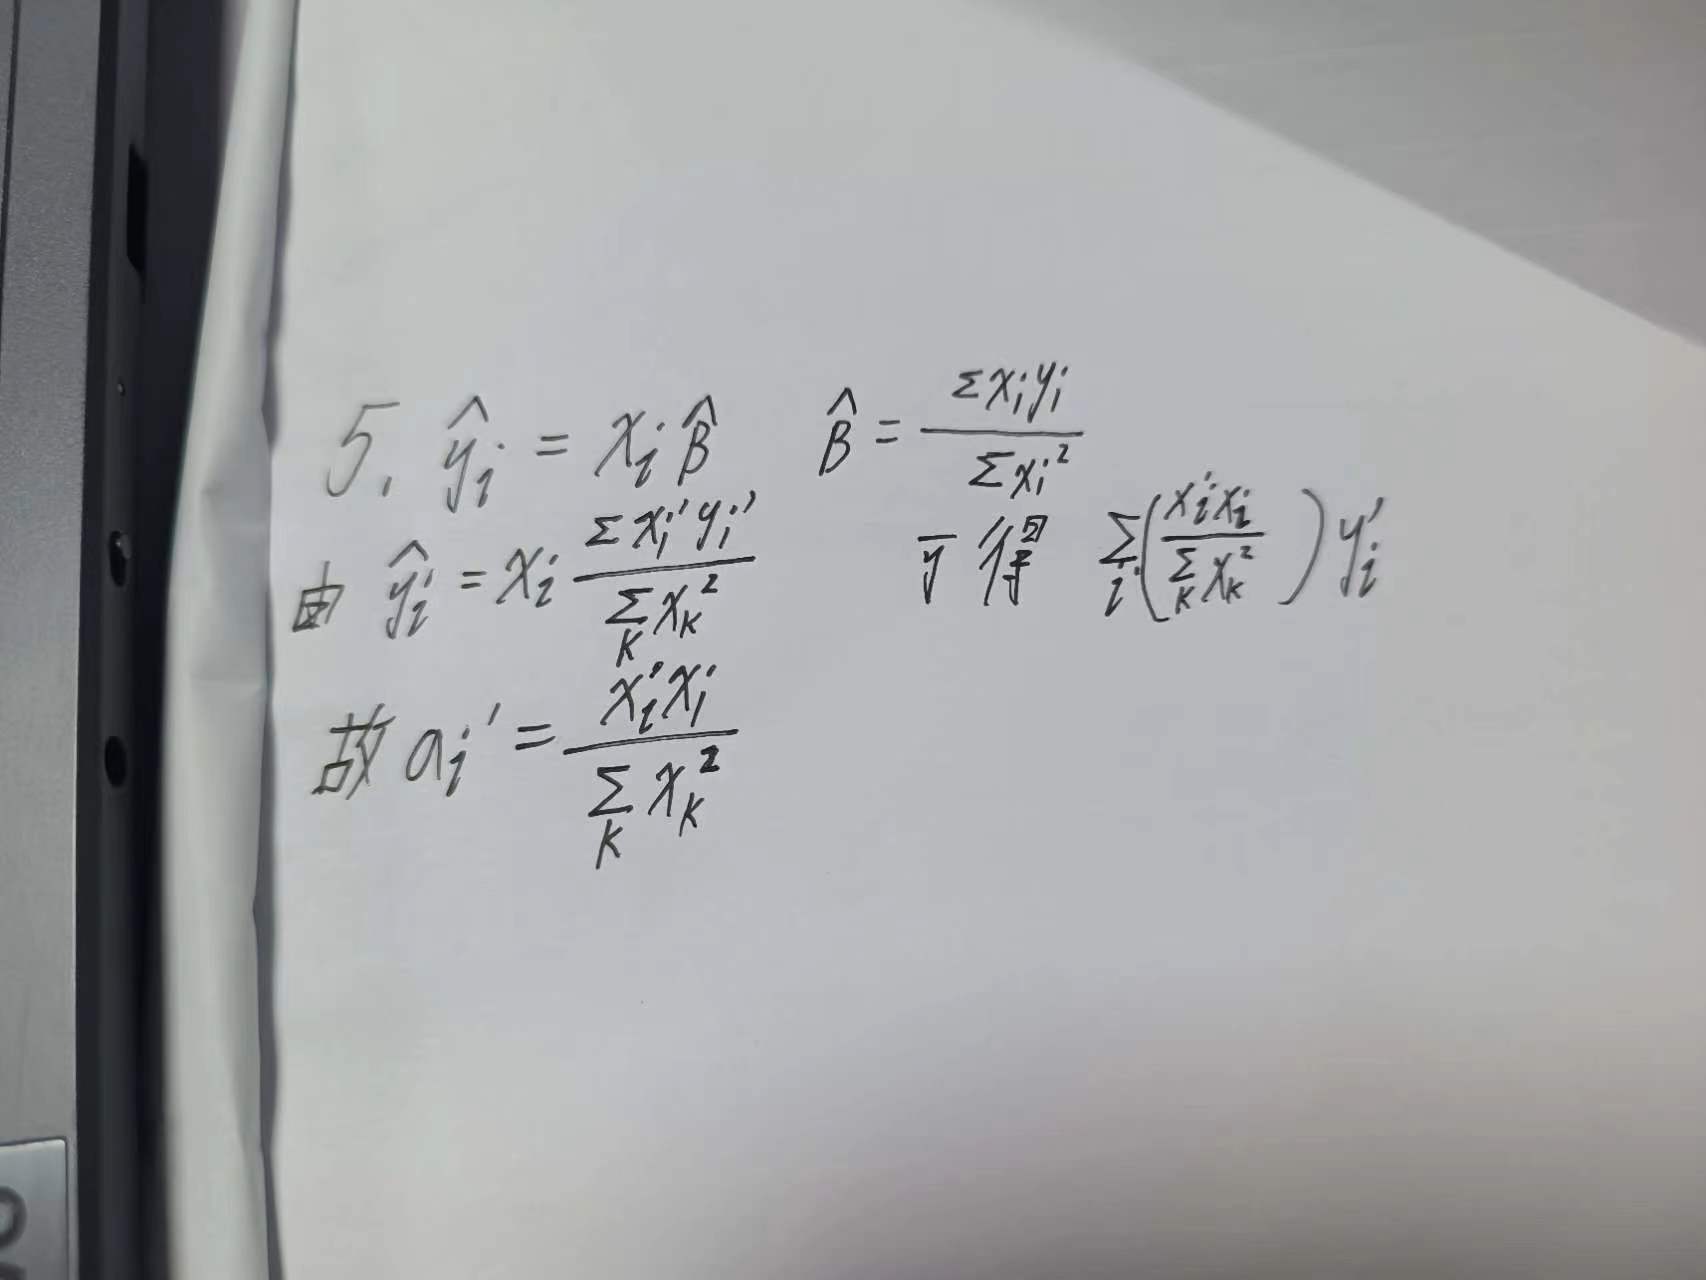 5. ŷᵢ = xᵢβ̂   β̂ = Σxᵢyᵢ / Σxᵢ²
由 ŷᵢ = xᵢ Σxᵢ'yᵢ' / Σₖ xₖ²   可得 Σᵢ(xᵢ'xᵢ / Σₖ xₖ²)yᵢ'
故 aᵢ' = xᵢ'xᵢ / Σₖ xₖ²